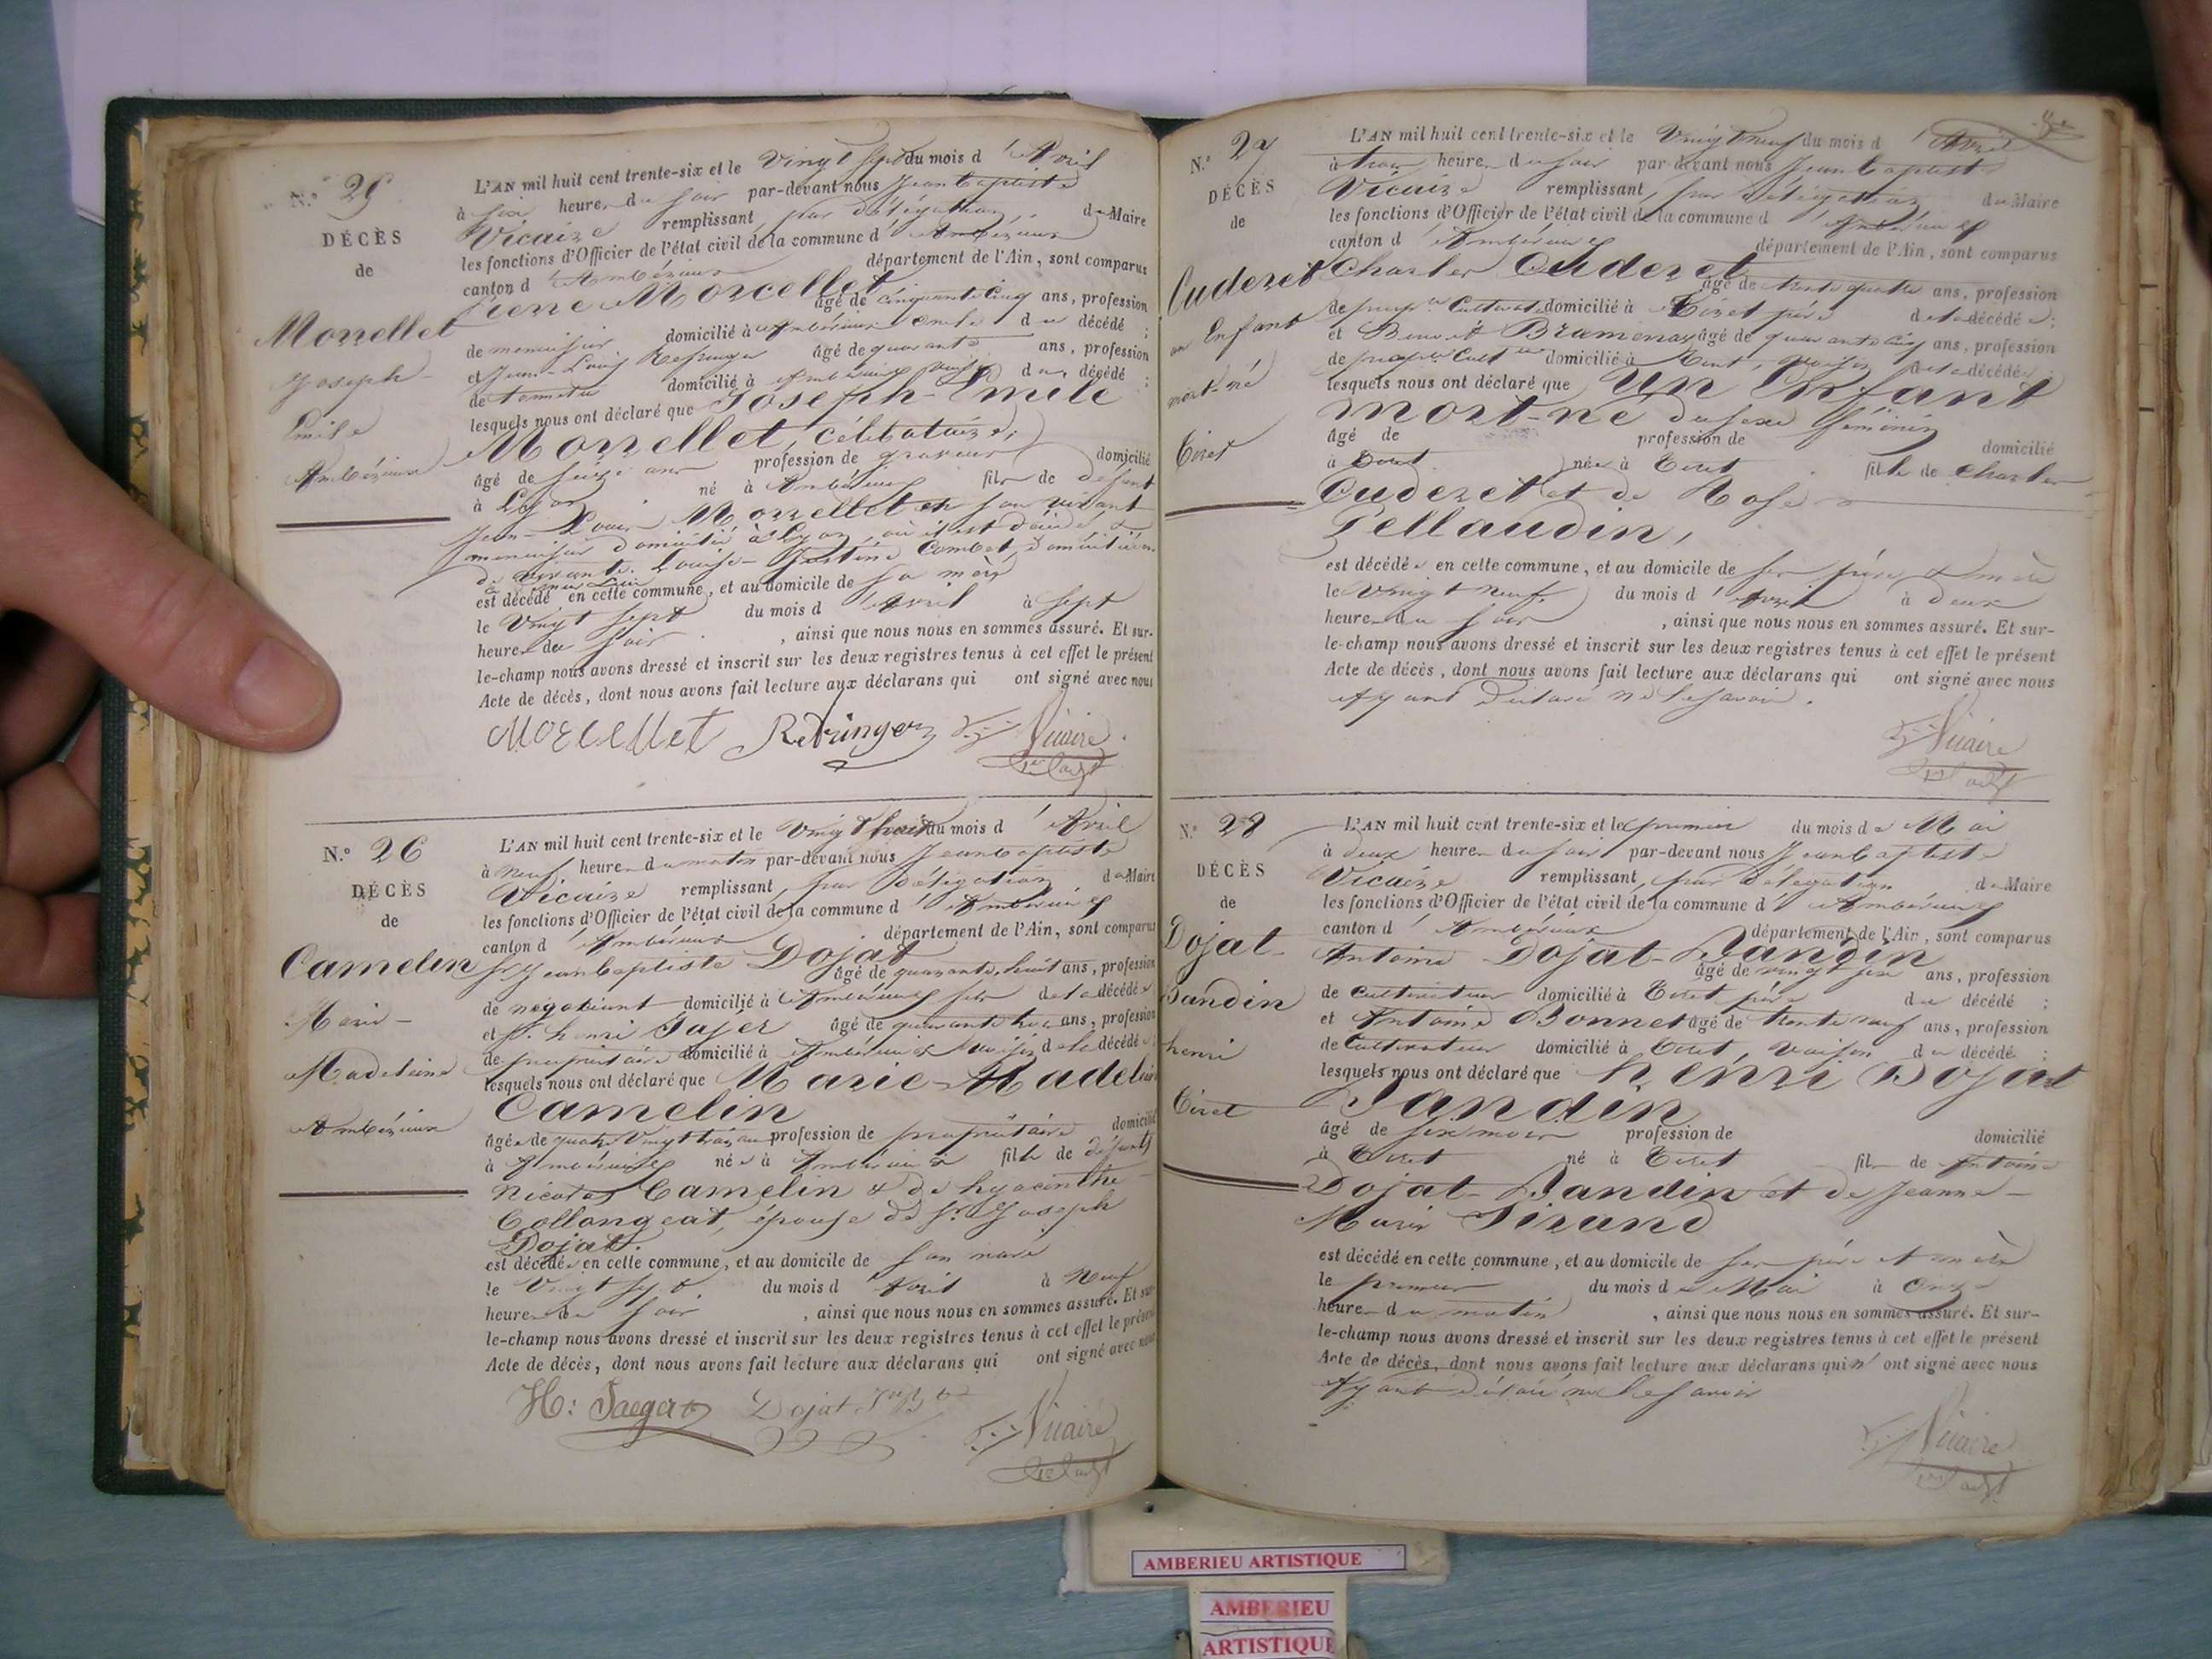 N.º 25
DÉCÈS
de
Morrellet
Joseph-
Emile
Ambérieux
L'AN mil huit cent trente-six et le Vingt sept du mois d'Avril
à six heures du soir par-devant nous Jean Baptiste
Vicaire remplissant, par délégation, du Maire
les fonctions d'Officier de l'état civil de la commune d'Ambérieux
canton d'Ambérieux département de l'Ain, sont comparus
Morcellet âgé de cinquante cinq ans, profession
de menuisier domicilié à Ambérieux oncle du décédé;
et Jean-Louis âgé de quarante ans, profession
de domicilié à Ambérieux du décédé;
lesquels nous ont déclaré que Joseph-Emile
Morrellet, célibataire,
âgé de seize ans profession de graveur domicilié
à Lyon né à Ambérieux fils de défunt
Jean-Louis Morrellet en son vivant
menuisier domicilié à Lyon, où il est décédé &
de vivante Louise- Combet, domiciliée
est décédé en cette commune, et au domicile de sa mère
le Vingt sept du mois d'Avril à sept
heures du soir, ainsi que nous nous en sommes assuré. Et sur-
le-champ nous avons dressé et inscrit sur les deux registres tenus à cet effet le présent
Acte de décès, dont nous avons fait lecture aux déclarans qui ont signé avec nous
Morcellet Vicaire
N.º 26
DÉCÈS
de
Camelin
Marie-
Madeleine
Ambérieux
L'AN mil huit cent trente-six et le Vingt huit du mois d'Avril
à neuf heures du matin par-devant nous Jean Baptiste
Vicaire remplissant, par délégation, du Maire
les fonctions d'Officier de l'état civil de la commune d'Ambérieux
canton d'Ambérieux département de l'Ain, sont comparus
Sr Jean Baptiste Dojat âgé de quarante-huit ans, profession
de négociant domicilié à Ambérieux fils de la décédée
et Sr. henri Jajer âgé de quarante ans, profession
de propriétaire domicilié à Ambérieux voisin de la décédée;
lesquels nous ont déclaré que Marie-Madeleine
Camelin
âgée de quatre vingt ans profession de propriétaire domicilié
à Ambérieux née à Ambérieux fille de défunts
Nicolas Camelin & de hyacinthe
Collongeat, épouse de Sr Joseph
Dojat.
est décédée en cette commune, et au domicile de son mari
le Vingt sept du mois d'Avril à Neuf
heures du soir, ainsi que nous nous en sommes assuré. Et sur-
le-champ nous avons dressé et inscrit sur les deux registres tenus à cet effet le présent
Acte de décès, dont nous avons fait lecture aux déclarans qui ont signé avec nous
H: Jaeger Dojat Vicaire
N.º 27
DÉCÈS
de
Cuderet
un Enfant
mort-né
Tiret
L'AN mil huit cent trente-six et le Vingt neuf du mois d'Avril
à trois heures du soir par-devant nous Jean Baptiste
Vicaire remplissant, par délégation du Maire
les fonctions d'Officier de l'état civil de la commune d'Ambérieux
canton d'Ambérieux département de l'Ain, sont comparus
Charles Cuderet âgé de trente quatre ans, profession
de domicilié à Tiret père de la décédée;
et Benoit Bramenas âgé de quarante cinq ans, profession
de domicilié à Tiret, voisin de la décédée
lesquels nous ont déclaré que Un Enfant
mort-né du sexe féminin
âgé de profession de domicilié
à Tiret née à Tiret fille de Charles
Cuderet et de Rose
Tellaudin,
est décédée en cette commune, et au domicile de ses père & mère
le Vingt neuf du mois d'Avril à deux
heures du soir, ainsi que nous nous en sommes assuré. Et sur-
le-champ nous avons dressé et inscrit sur les deux registres tenus à cet effet le présent
Acte de décès, dont nous avons fait lecture aux déclarans qui ont signé avec nous
Ayant déclaré ne le savoir.
Vicaire
N.º 28
DÉCÈS
de
Dojat-
Jandin
henri
Tiret
L'AN mil huit cent trente-six et le premier du mois de Mai
à deux heures du soir par-devant nous Jean Baptiste
Vicaire remplissant, par délégation du Maire
les fonctions d'Officier de l'état civil de la commune d'Ambérieux
canton d'Ambérieux département de l'Ain, sont comparus
Antoine Dojat-Jandin âgé de vingt six ans, profession
de cultivateur domicilié à Tiret père du décédé;
et Antoine Bonnet âgé de trente neuf ans, profession
de Cultivateur domicilié à Tiret, Voisin du décédé;
lesquels nous ont déclaré que henri Dojat
Jandin
âgé de six mois profession de domicilié
à Tiret né à Tiret fils de Antoine
Dojat-Jandin et de Jeanne-
Marie Sirand
est décédé en cette commune, et au domicile de ses père et mère
le premier du mois de Mai à Onze
heures du matin, ainsi que nous nous en sommes assuré. Et sur-
le-champ nous avons dressé et inscrit sur les deux registres tenus à cet effet le présent
Acte de décès, dont nous avons fait lecture aux déclarans qui n'ont signé avec nous
Ayant déclaré ne le savoir
Vicaire
AMBERIEU ARTISTIQUE
AMBERIEU
ARTISTIQUE